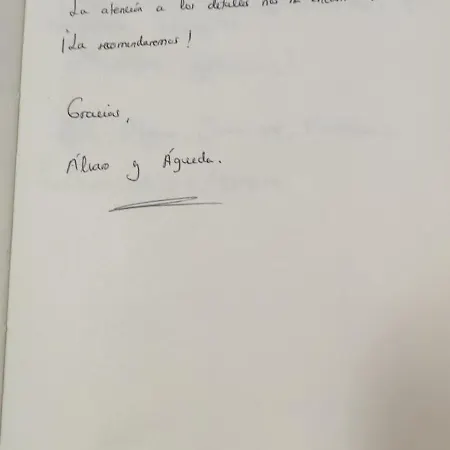 La atención a los detalles nos
¡La recomendaremos!
Gracias,
Álvaro y Águeda.